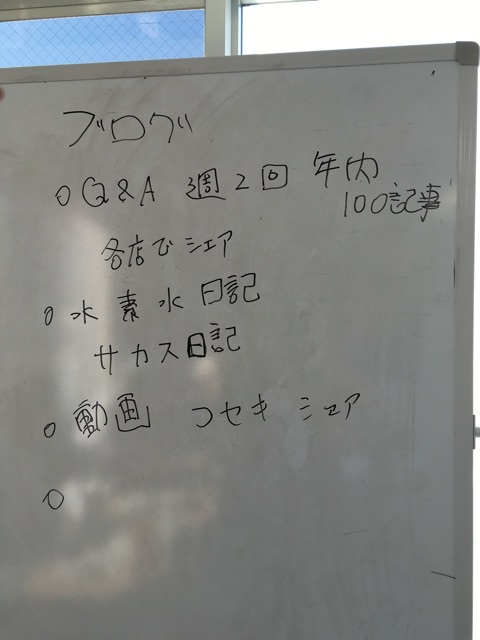 ブログ
○Q&A 週2回 年内
100記事
各店でシェア
○水素水日記
サカス日記
○動画 コセキ シェア
○